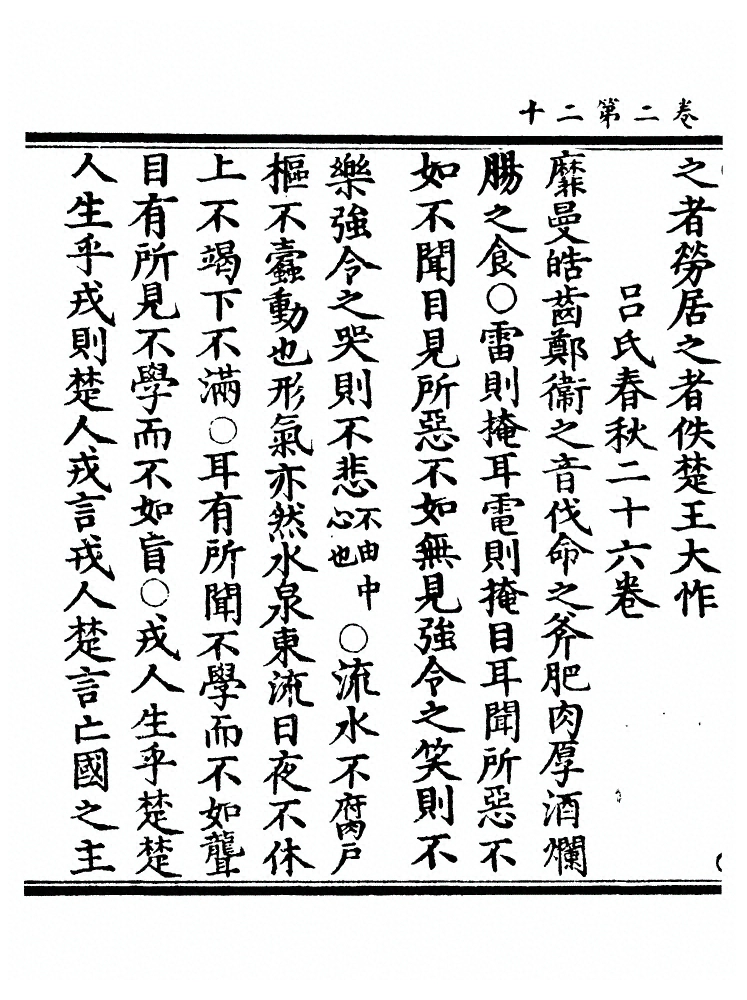 卷二第二十
之者勞居之者佚楚王大怍
呂氏春秋二十六卷
靡曼皓齒鄭衞之音伐命之斧肥肉厚酒爛
腸之食〇雷則掩耳電則掩目耳聞所惡不
如不聞目見所惡不如無見強令之笑則不
樂強令之哭則不悲不由中心也〇流水不腐戶
樞不蠹動也形氣亦然水泉東流日夜不休
上不竭下不滿〇耳有所聞不學而不如聾
目有所見不學而不如盲〇戎人生乎楚楚
人生乎戎則楚人戎言戎人楚言亡國之主